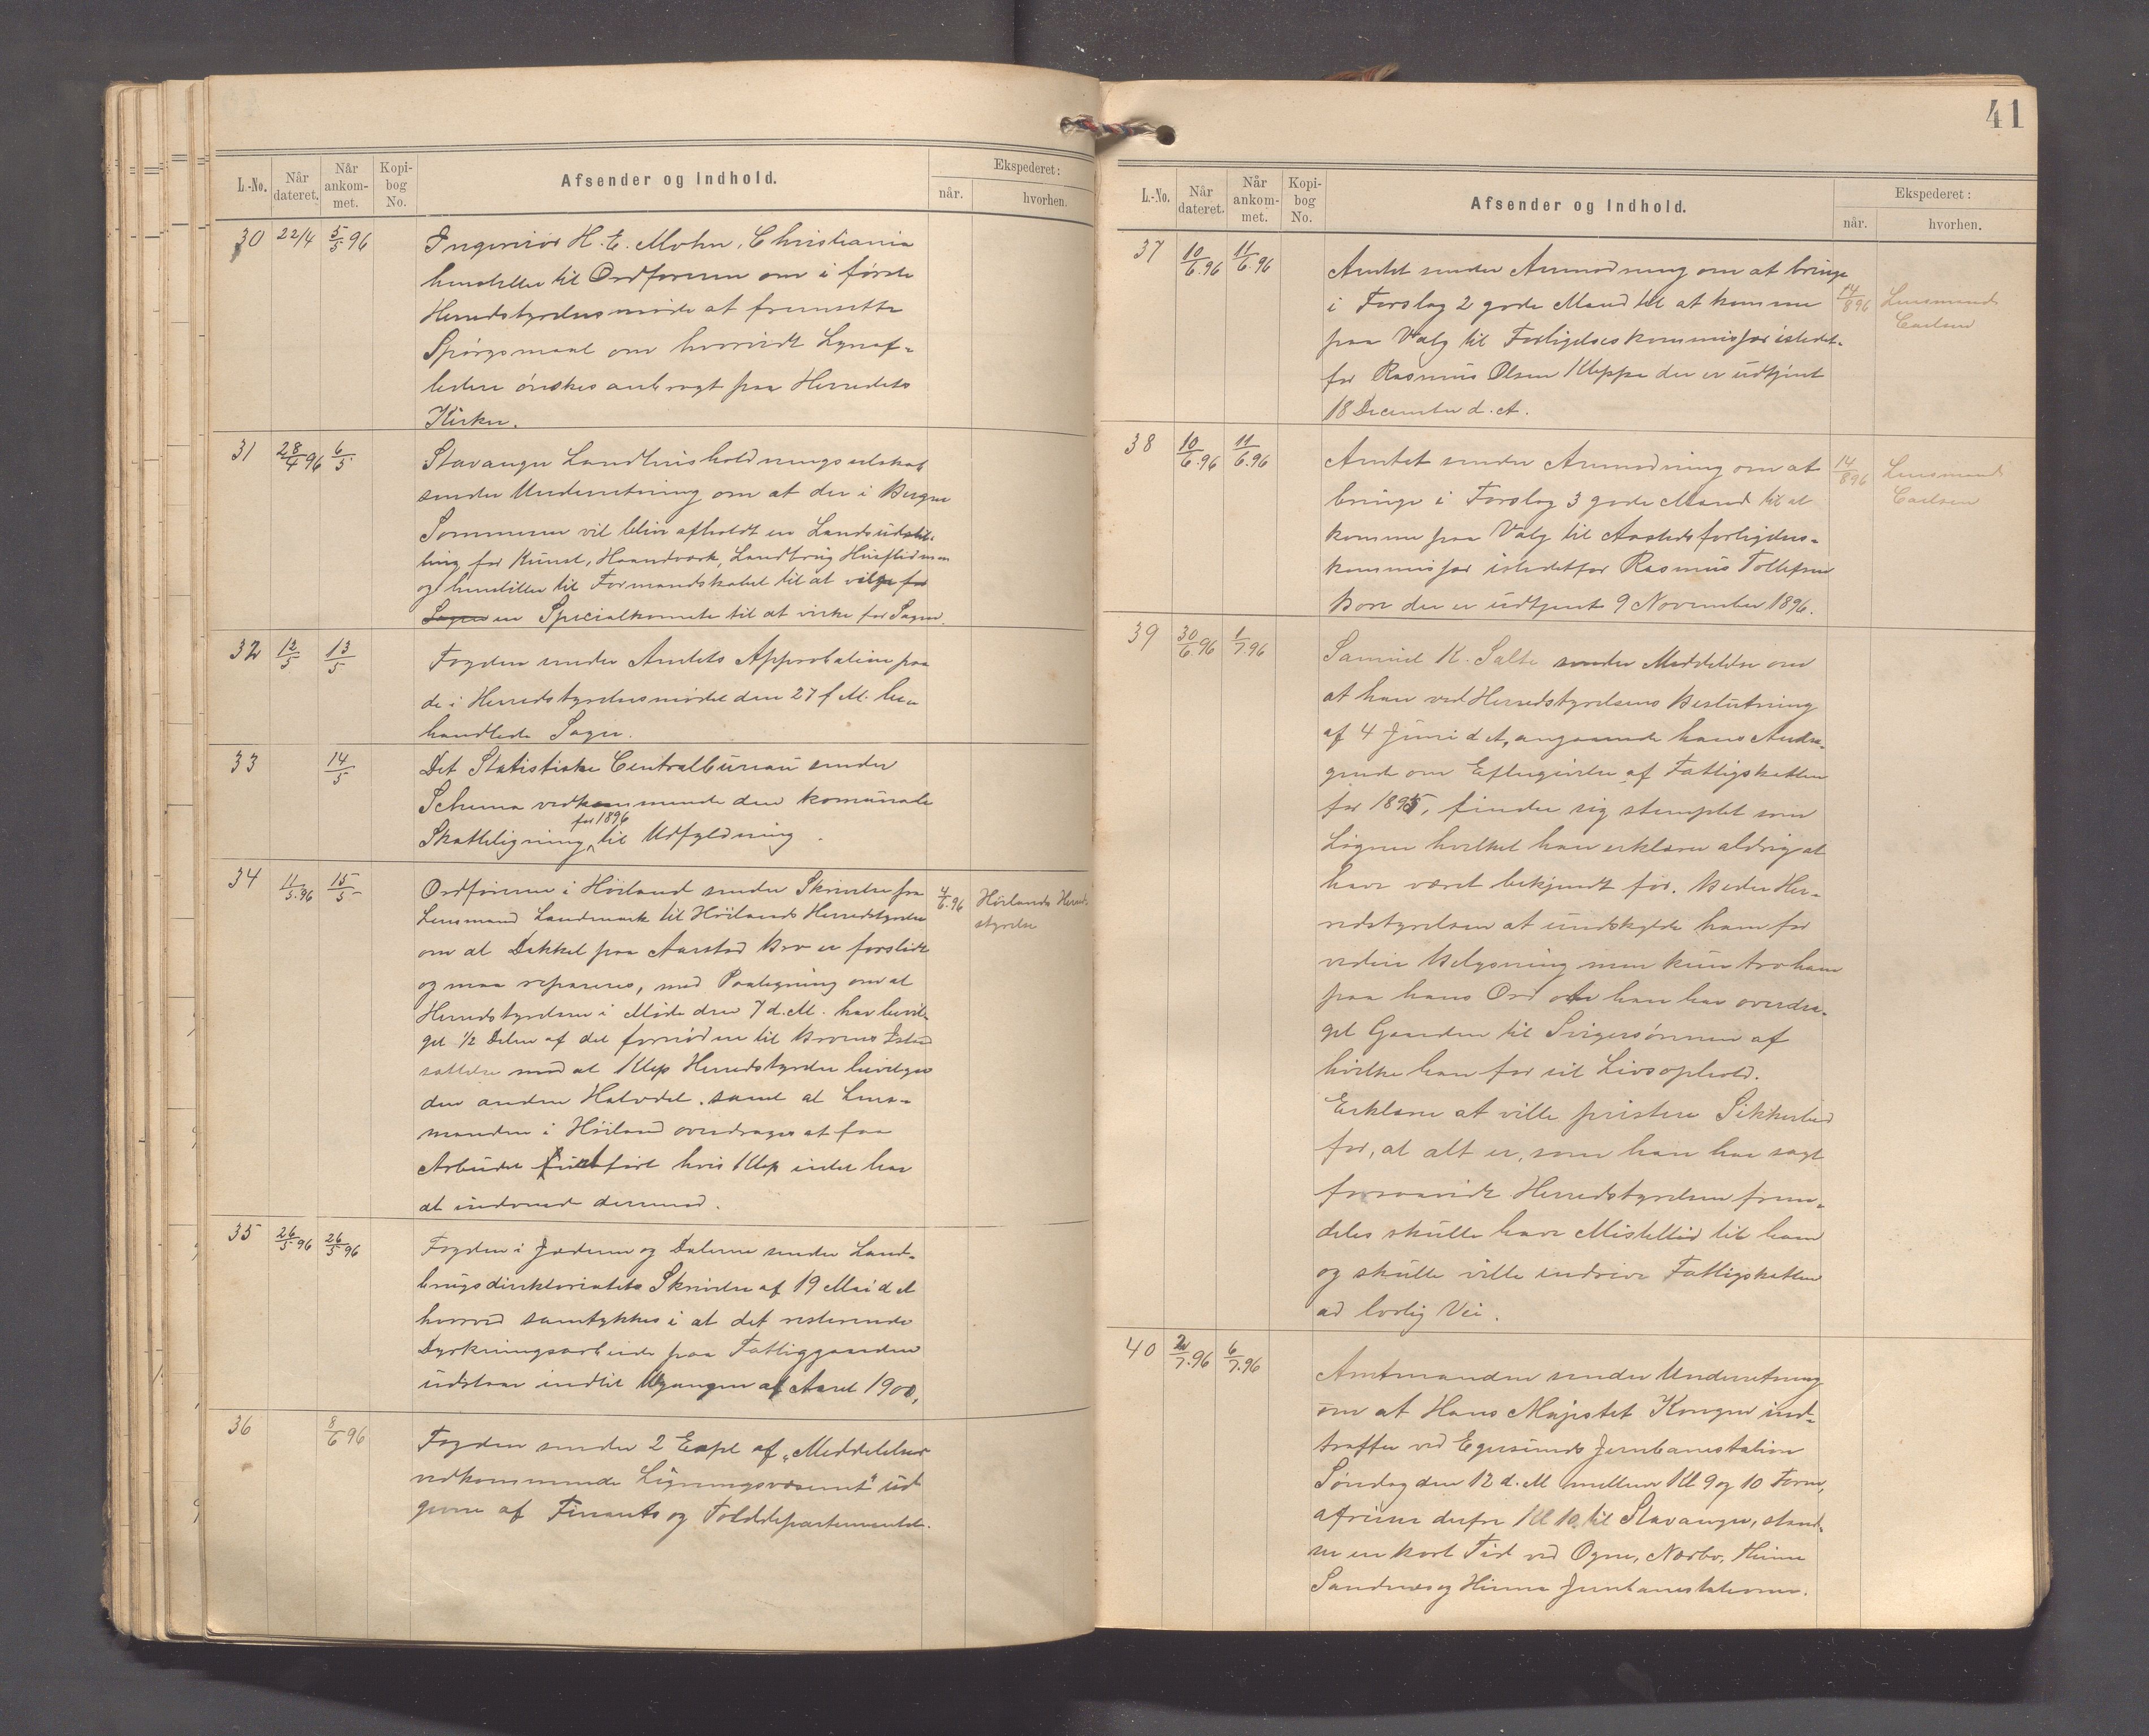 L.-No. Når dateret. Når ankom- met. Kopi- bog No. Afsender og Indhold. Ekspederet: når. hvorhen.
30 22/4 5/5 96 Ingeniør H. E. Mohn, Christiania
henstiller til Ordføreren om i første
Herredstyrelsesmøde at fremsette
Spørgsmaal om hvorvidt Lynaf-
ledere ønskes anbragt paa Herredets
Kirker.
31 28/4 96 6/5 Stavanger Landhusholdningsselskab
sender Underretning om at der i Bergen
Sommeren vil blive afholdt en Landsudstil-
ling for Kunst, Haandværk, Landbrug Husflid m m
og henstiller til Formandskabet til at vælge for
Sagen en Specialkomite til at virke for Sagen.
32 12/5 13/5 Fogden sender Amtets Approbation paa
de i Herredstyrelsesmødet den 27 f. M. be-
handlede Sager.
33 14/5 Det Statistiske Centralbureau sender
Schema vedkommende den komunale
Skatteligning for 1896 til Udfyldning.
34 11/5.96 15/5 Ordføreren i Høiland sender Skrivelse fra 4/6.96 Høilands Herred-
Lensmand Landmark til Høilands Herredstyrelse styrelse
om at Dækket paa Aarstad Bro er forslidt
og maa repareres, med Paategning om at
Herredstyrelsen i Møde den 7 d. M. har bevil-
get 1/2 Delen af det fornødne til Broens Istand
sættelse mod at Klep Herredstyrelse bevilger
den anden Halvdel, samt at Lens-
manden i Høiland overdrages at faa
Arbeidet udført hvis Klep intet har
at indvende dermed.
35 26/5 96 26/5 96 Fogden i Jæderen og Dalerne sender Land-
brugsdirektoriatets Skrivelse af 19 Mai d A
hvorved samtykkes i at det resterende
Dyrkningsarbeide paa Fattiggaarden
udstaar indtil Udgangen af Aaret 1900,
36 8/6 96 Fogden sender 2 Expl af "Meddelelser
vedkommende Ligningsvæsenet" ud
givne af Finants og Tolddepartementet.
41
L.-No. Når dateret. Når ankom- met. Kopi- bog No. Afsender og Indhold. Ekspederet: når. hvorhen.
37 10/6.96 11/6.96 Amtet sender Anmodning om at bringe
i Forslag 2 gode Mænd til at komme 14/8 96 Lensmand
paa Valg til Forligelseskommissær istedet- Carlsen
for Rasmus Olsen Kleppe der er udtjent
18 December d. A.
38 10/6.96 11/6.96 Amtet sender Anmodning om at 14/8 96 Lensmand
bringe i Forslag 3 gode Mænd til at Carlsen
komme paa Valg til Aastedsforligelses-
kommissær istedetfor Rasmus Tollefsen
Bore der er udtjent 9 November 1896.
39 30/6 96 1/7.96 Samuel K. Salte sender Meddelelse om
at han ved Herredstyrelsens Beslutning
af 4 Juni d A, angaaende hans Andra-
gende om Eftergivelse af Fattigskatten
for 1895, finder sig stemplet som
Løgner hvilket han erklærer aldrig at
have været bekjendt for. Beder Her-
redstyrelsen at undskylde ham for
videre Belysning men kun tro ham
paa hans Ord at han har overdra-
get Gaarden til Svigersønnen af
hvilke han faar sit Livsophold.
Erklærer at ville præstere Sikkerhed
for, at alt er, som han har sagt
forsaavidt Herredstyrelsen frem-
deles skulle have Mistillid til ham
og skulle ville inddrive Fattigskatten
ad lovlig Vei.
40 2/7.96 6/7.96 Amtmanden sender Underretning
om at Hans Majestet Kongen ind-
træffer ved Egersunds Jernbanestation
Søndag den 12 d. M mellem Kl 9 og 10 Form,
afreiser derfra Kl 10, til Stavanger, stand-
ser en kort Tid ved Ogne, Nærbø,
Sandnes og Hinna Jernbanestationer.